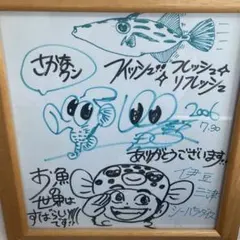 さかなクン
フィッシュ!!☆フレッシュ☆
リフレッシュ
2006
7.30
ありがとうございます!!
お魚の
世界は
すばらしい
です!!
伊豆
三津
シーパラダイス